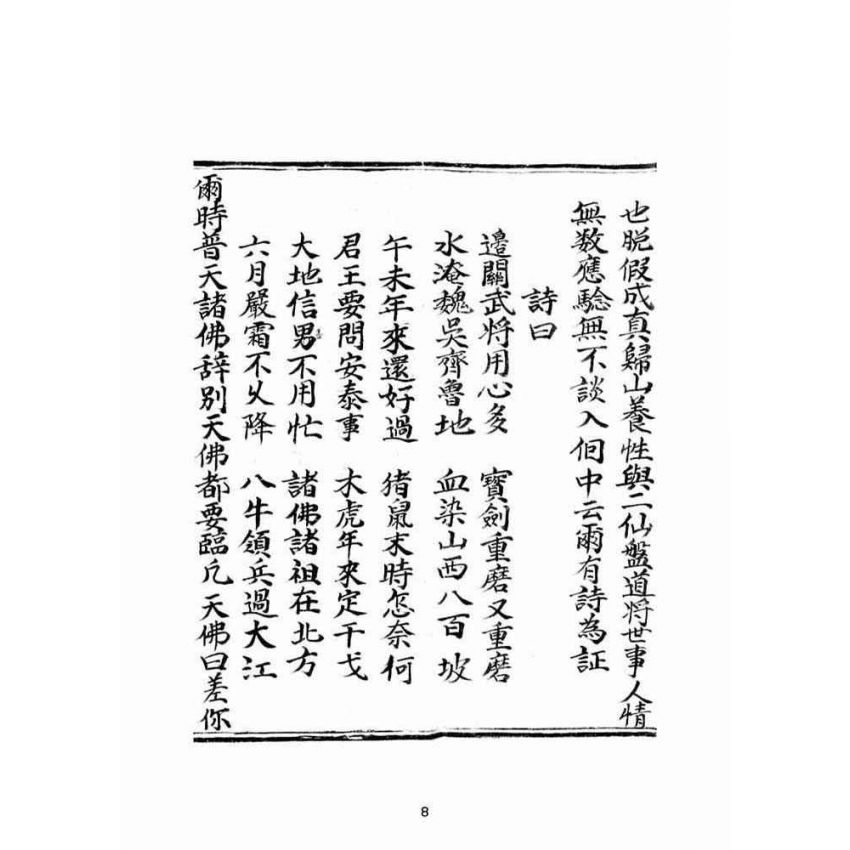 也脫假成真歸山養性與二仙盤道将世事人情
無数應驗無不談入佪中云爾有詩為証
詩曰
邉關武将用心多 寳劍重磨又重磨
水淹魏吳齊魯地 血染山西八百坡
午未年來還好過 猪鼠末時怎奈何
君王要問安泰事 木虎年來定干戈
大地信男不用忙 諸佛諸祖在北方
六月嚴霜不乆降 八牛領兵過大江
爾時普天諸佛辞别天佛都要臨凢天佛曰差你
8